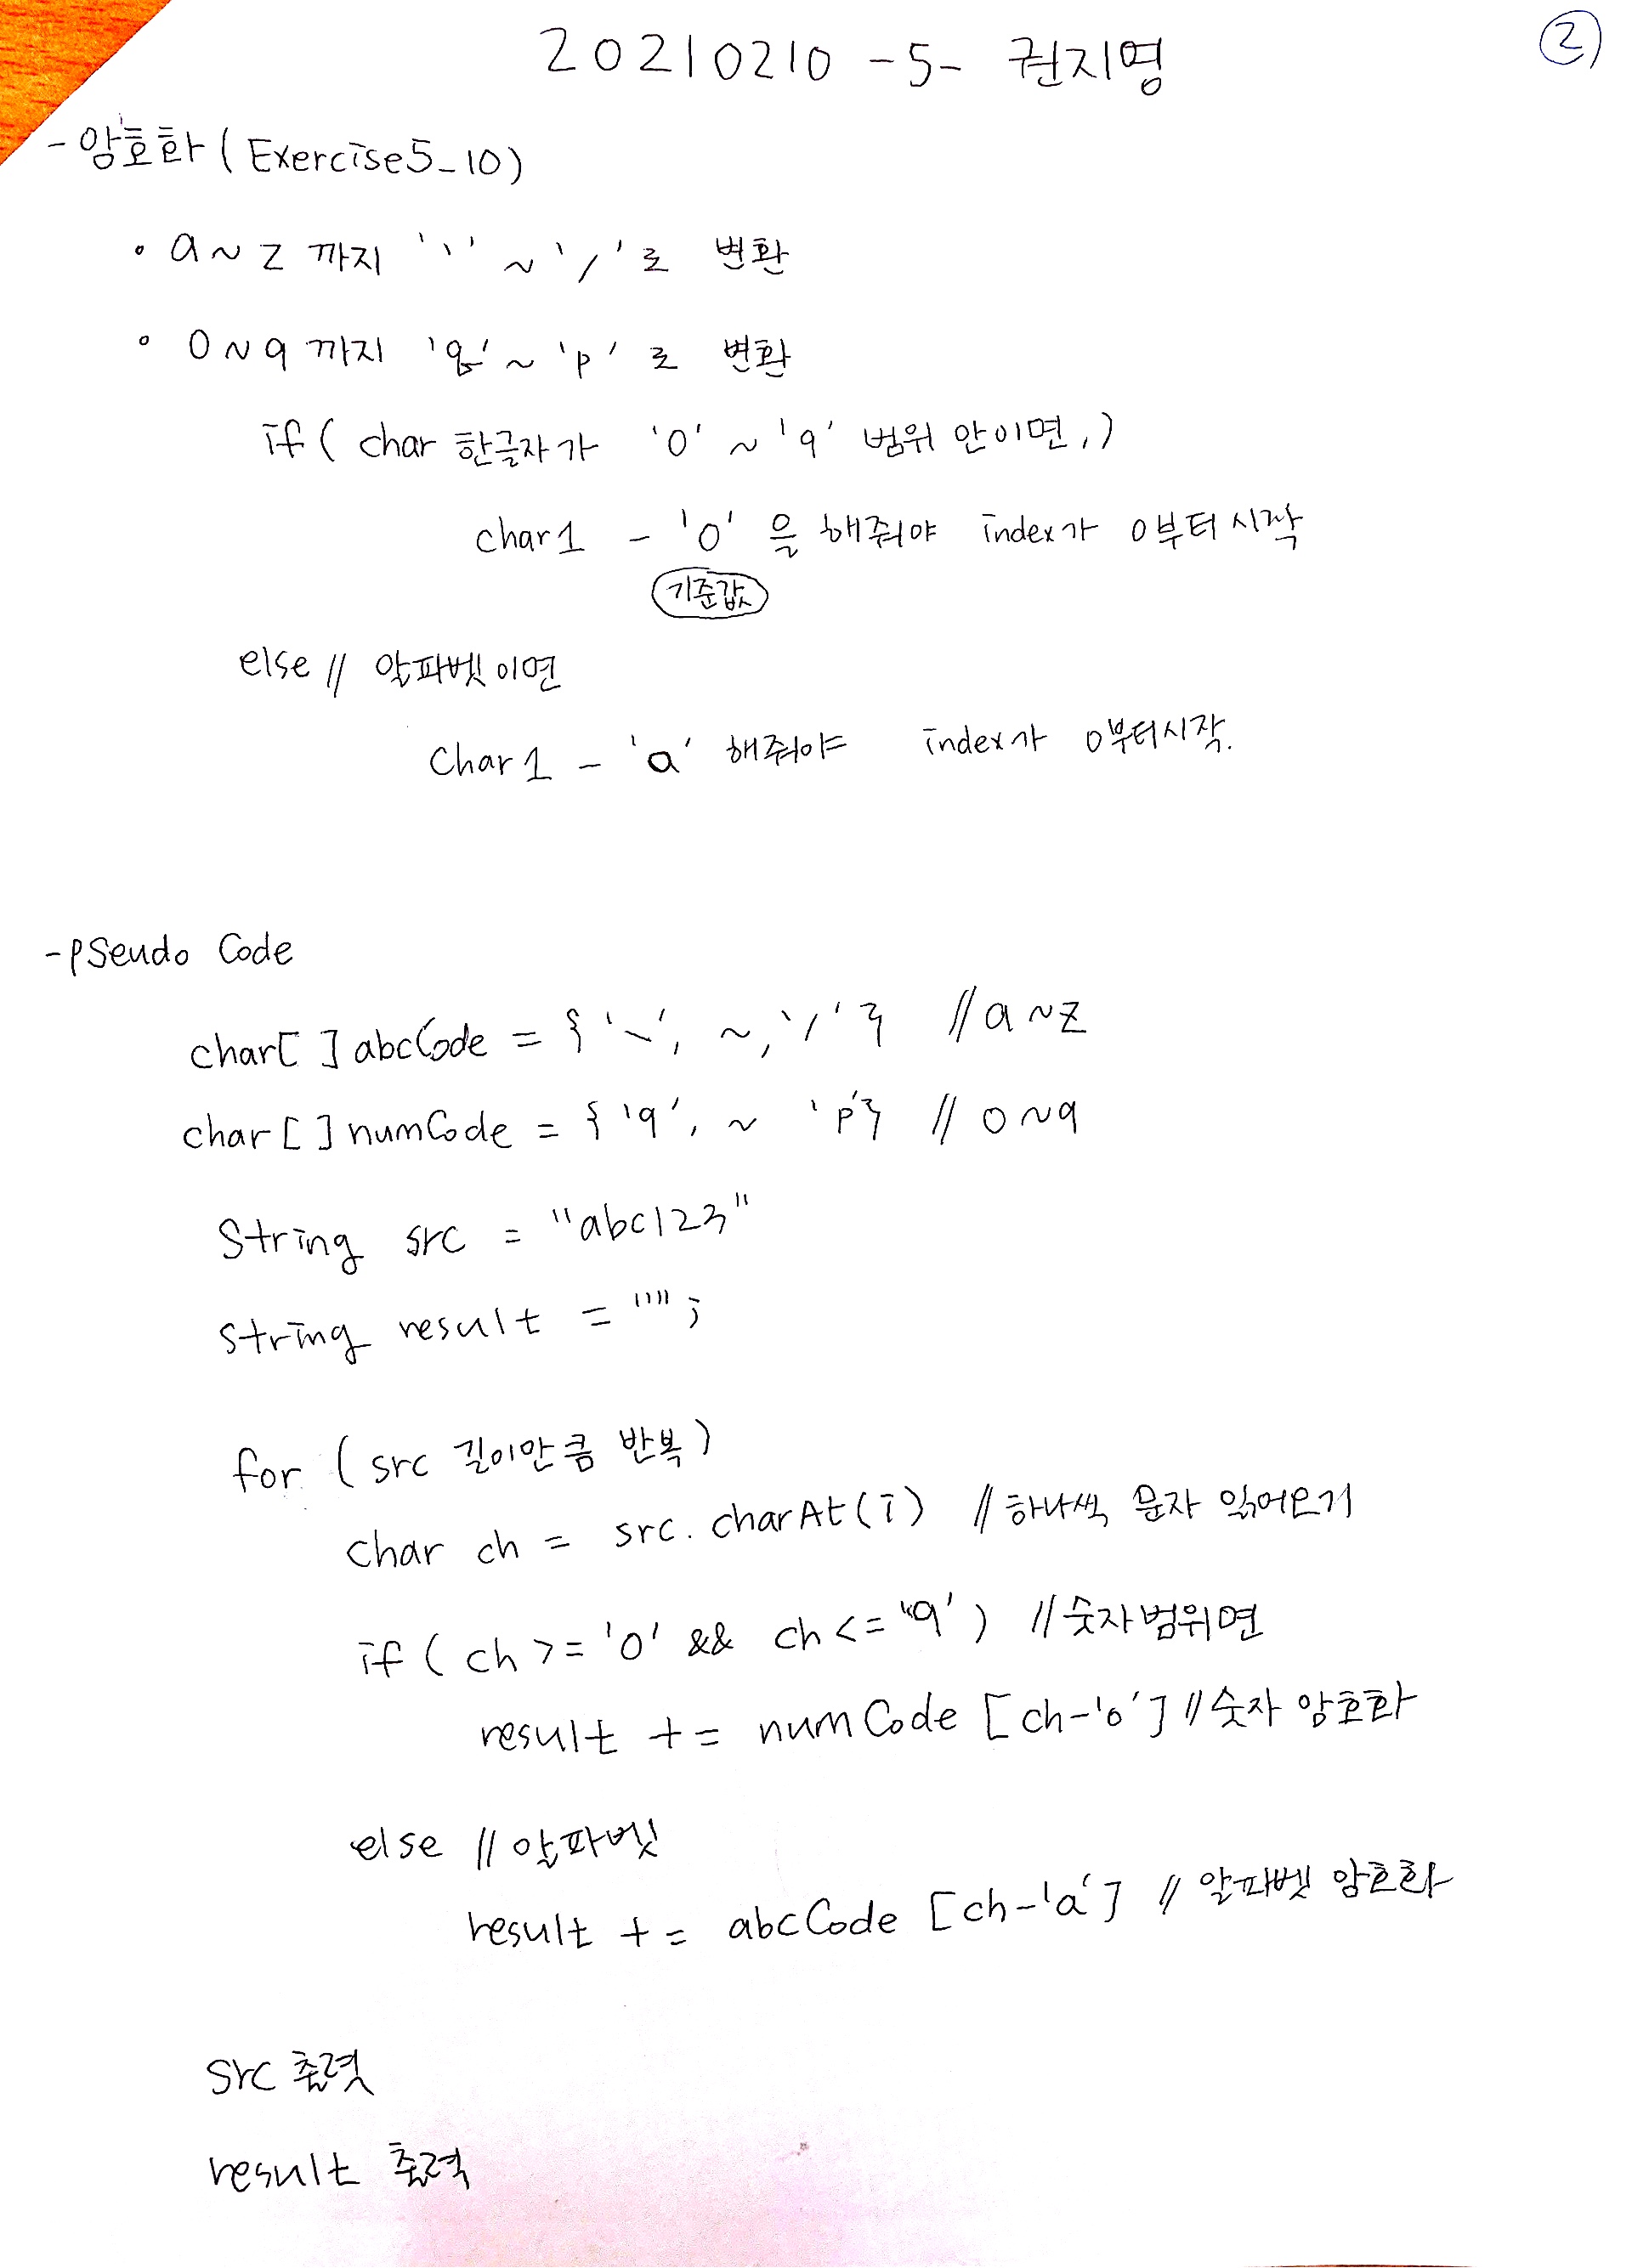 20210210 -5- 권지영 ②
- 암호화 ( Exercise5_10)
• a ~ z 까지 '`' ~ '/' 로 변환
• 0 ~ 9 까지 'q' ~ 'p' 로 변환
if ( char 한글자가 '0' ~ '9' 범위 안이면, )
char1 - '0' 을 해줘야 index가 0부터 시작
기준값
else // 알파벳이면
char1 - 'a' 해줘야 index가 0부터시작.
- pseudo Code
char[ ] abcCode = { '`', ~, '/' } // a ~ z
char [ ] numCode = { 'q', ~ 'p'} // 0 ~ 9
String src = "abc123"
String result = "";
for ( src 길이만큼 반복 )
char ch = src. charAt(i) // 하나씩 문자 읽어오기
if ( ch >= '0' && ch <= '9' ) // 숫자범위면
result += numCode [ch-'0'] // 숫자 암호화
else // 알파벳
result += abcCode [ch-'a'] // 알파벳 암호화
src 출력
result 출력